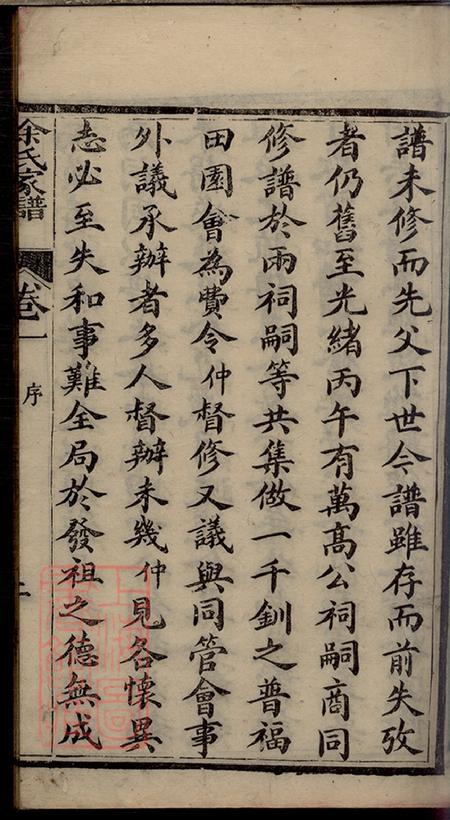 譜未修而先父下世今譜雖存而前失攷
者仍舊至光緒丙午有萬高公祠嗣商同
修譜於兩祠嗣等共集做一千釧之普福
田園會為費令仲督修又議與同管會事
外議承辦者多人督辦未幾仲見各懷異
志必至失和事難全局於發祖之德無成
徐氏家譜
卷一
序
二